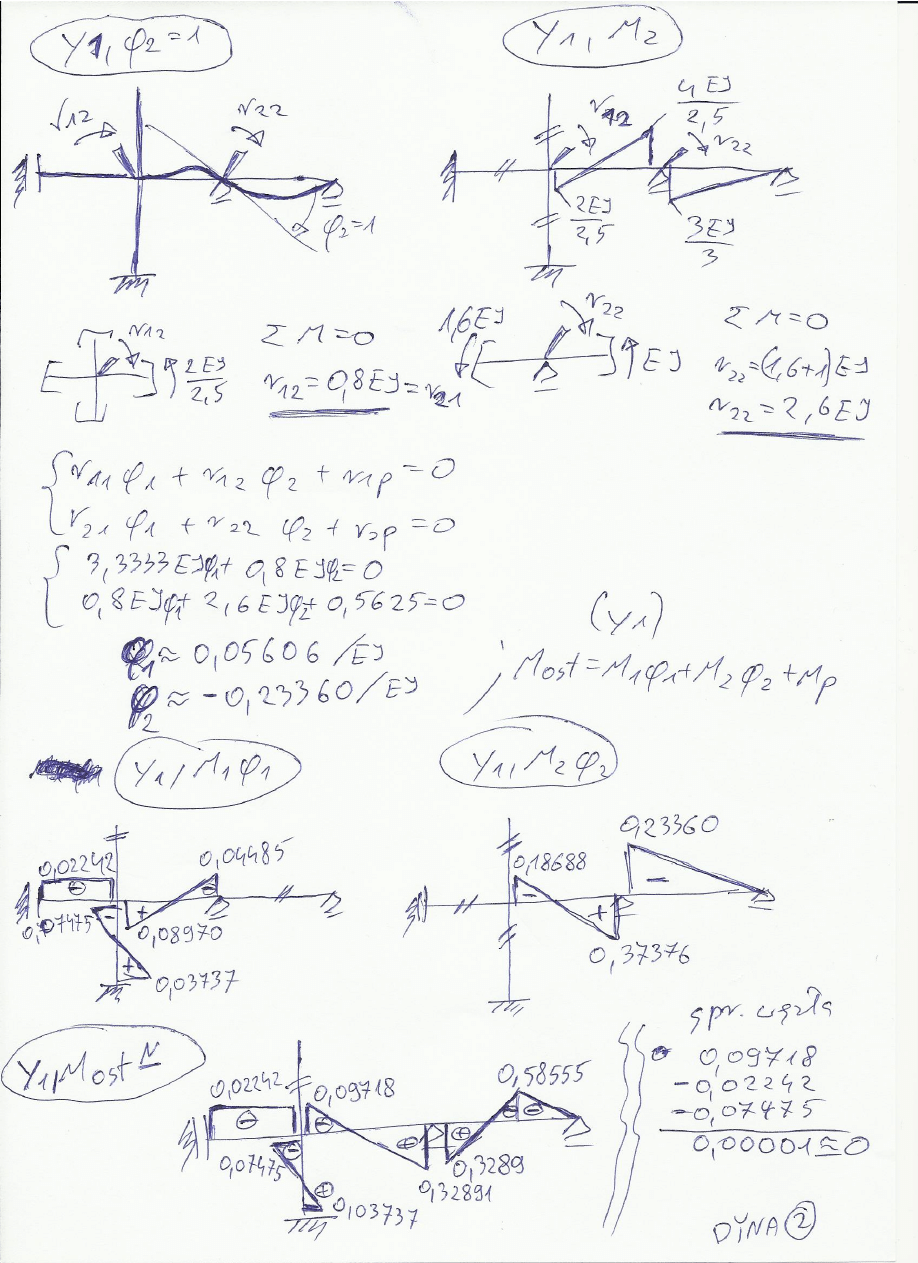 Y1, φ₂=1
Y1, M₂
r12
r22
φ₂=1
r12
4EJ/2,5
r22
2EJ/2,5
3EJ/3
r12
2EJ/2,5
ΣM=0
r12=0,8EJ=r21
1,6EJ
r22
EJ
ΣM=0
r22=(1,6+1)EJ
r22=2,6EJ
r11 φ1 + r12 φ2 + r1p = 0
r21 φ1 + r22 φ2 + r2p = 0
3,3333EJφ1+ 0,8EJφ2=0
0,8EJφ1+ 2,6EJφ2+ 0,5625=0
φ1 ≈ 0,05606/EJ
φ2 ≈ -0,23360/EJ
(Y1)
; Most=M1φ1+M2φ2+Mp
Y1, M1φ1
Y1, M2φ2
0,02242
0,04485
0,07475
0,08970
0,03737
0,23360
0,18688
0,37376
Y1, Most N
0,02242
0,09718
0,58555
0,07475
0,3289
0,32891
0,03737
spr. węzła
0,09718
-0,02242
-0,07475
0,00001≅0
DYNA 2